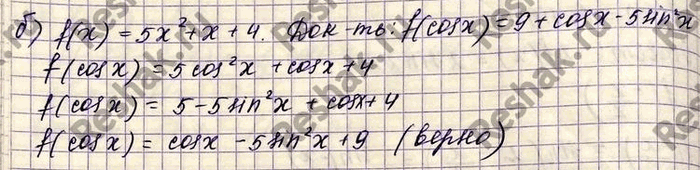 б) f(x) = 5x²+x+4. Док-ть: f(cosx)=9+cosx-5sin²x
f(cosx) = 5cos²x + cosx + 4
f(cosx) = 5-5sin²x + cosx+4
f(cosx) = cosx - 5sin²x + 9 (верно)
Reshak.ru